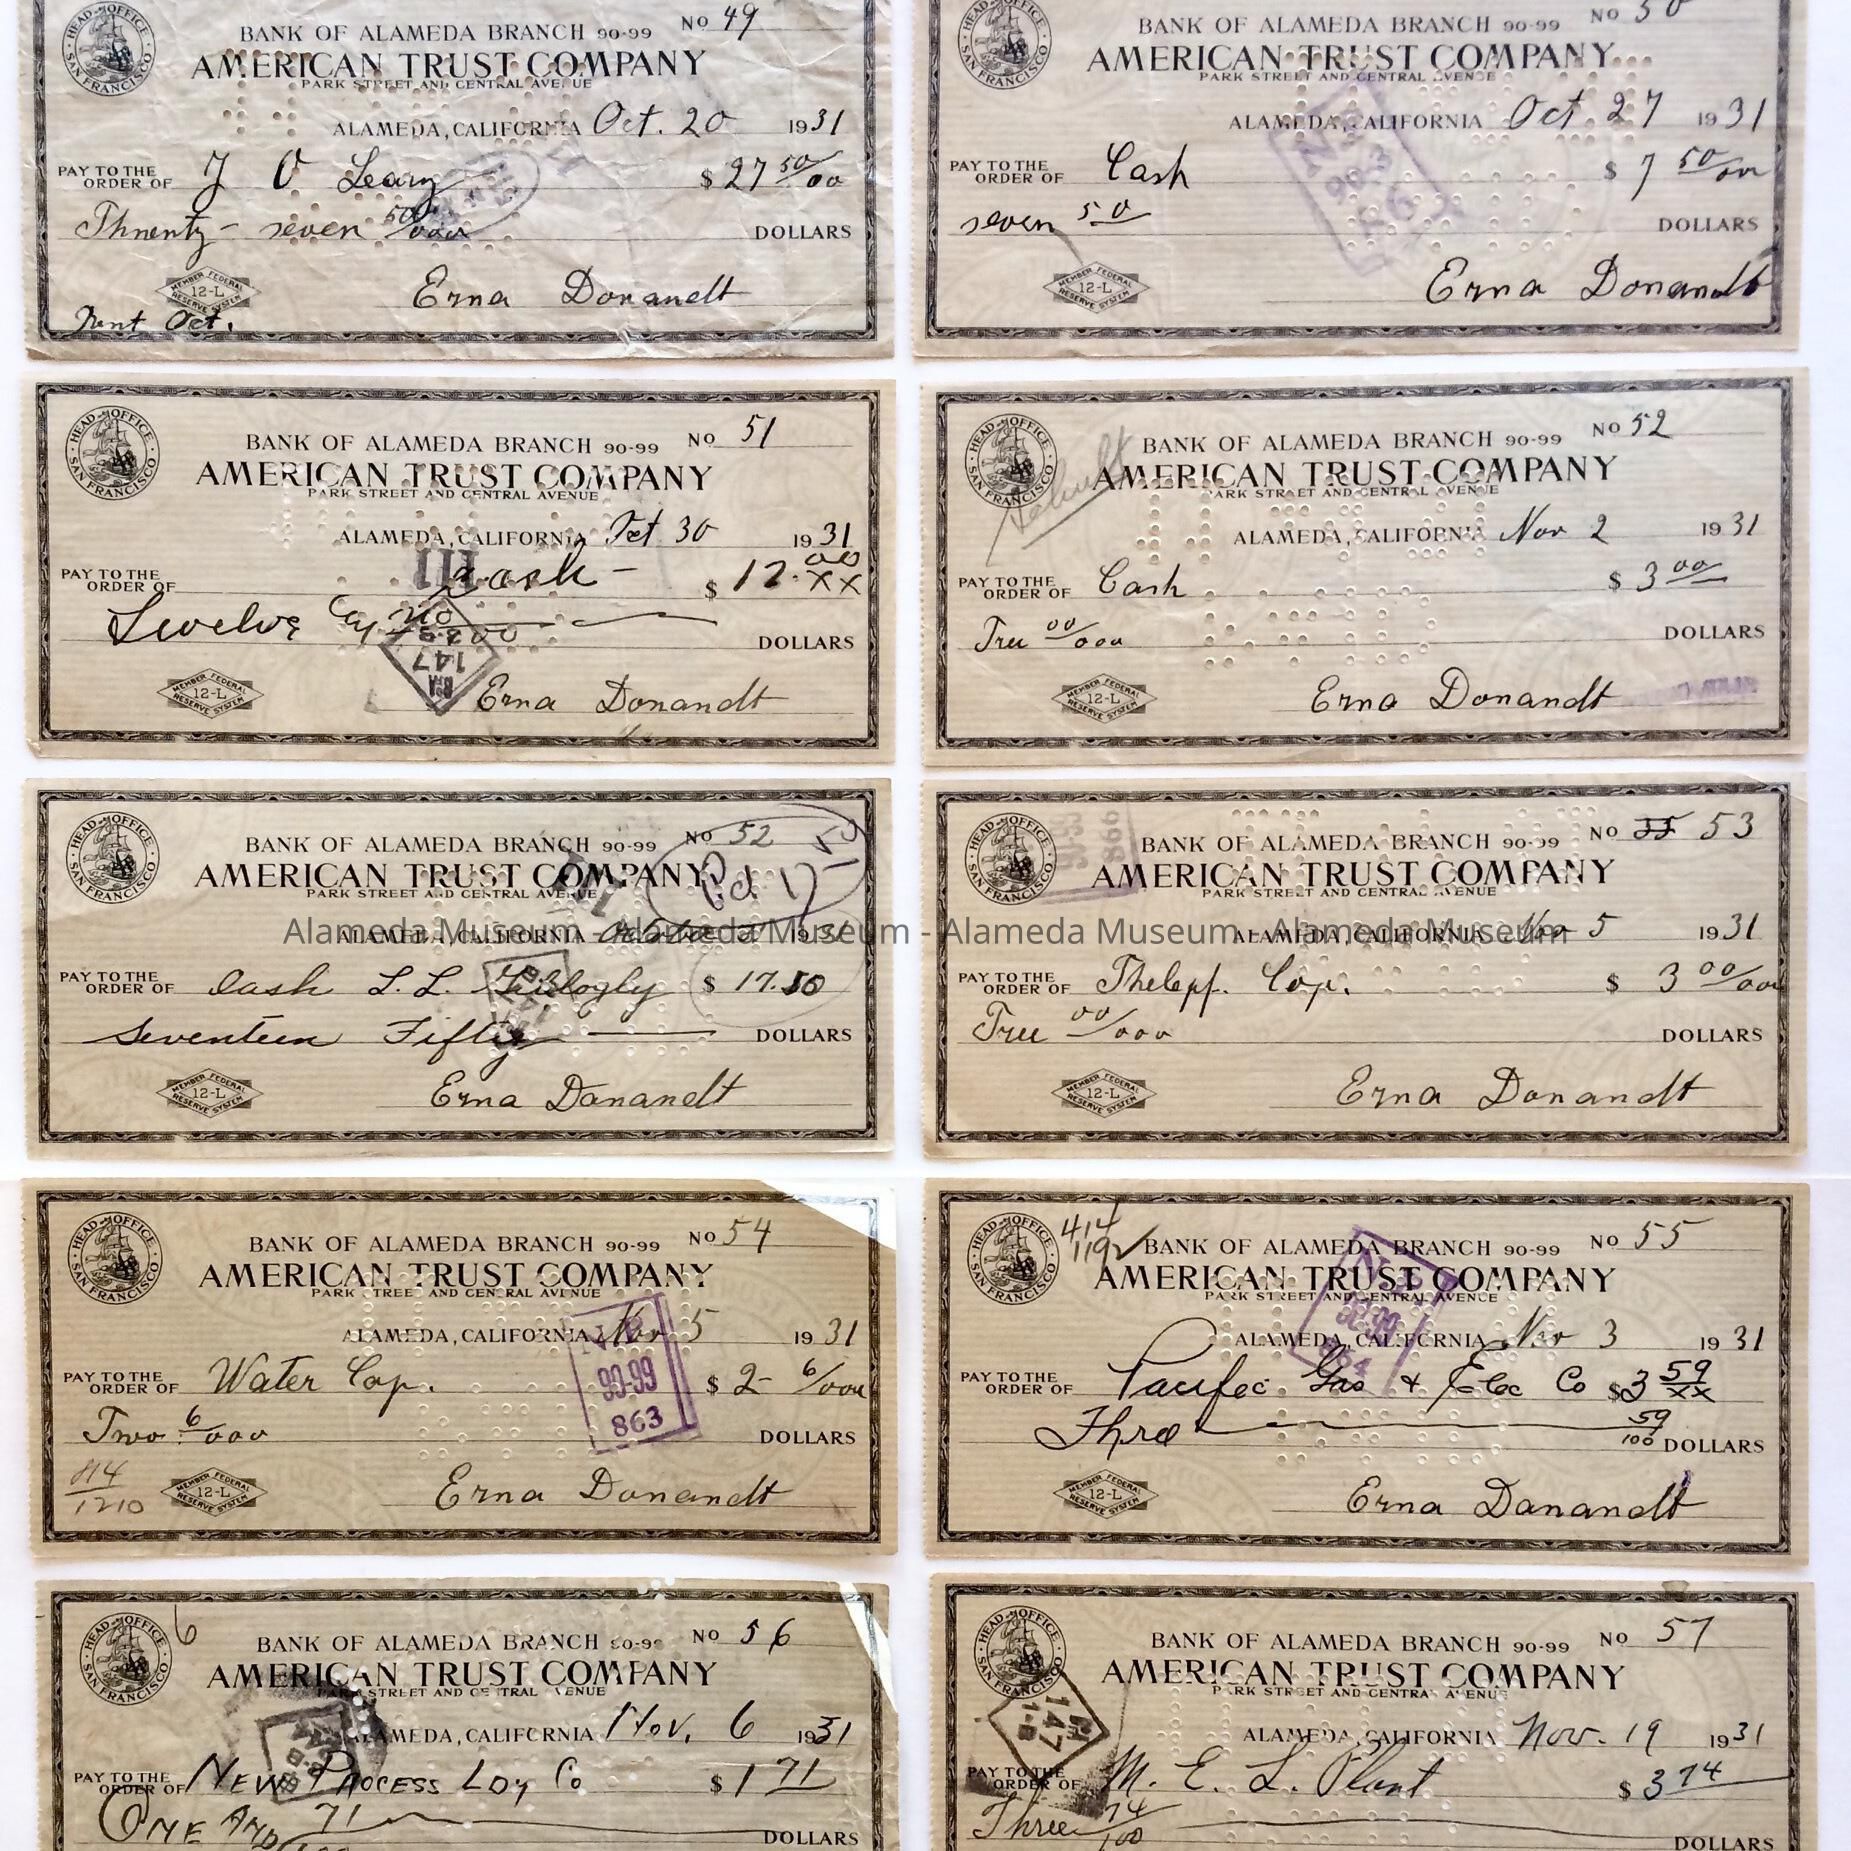 HEAD OFFICE SAN FRANCISCO
BANK OF ALAMEDA BRANCH 90-99 No 49
AMERICAN TRUST COMPANY
PARK STREET AND CENTRAL AVENUE
ALAMEDA, CALIFORNIA Oct. 20 1931
PAY TO THE ORDER OF J O Leary $ 27 50/00
Thnenty - seven 50/000 DOLLARS
MEMBER FEDERAL RESERVE SYSTEM 12-L
Erna Donandt
Rent Oct.
HEAD OFFICE SAN FRANCISCO
BANK OF ALAMEDA BRANCH 90-99 No 50
AMERICAN TRUST COMPANY
PARK STREET AND CENTRAL AVENUE
ALAMEDA, CALIFORNIA Oct 27 1931
PAY TO THE ORDER OF Cash $ 7 50/00
seven 50 DOLLARS
MEMBER FEDERAL RESERVE SYSTEM 12-L
Erna Donandt
HEAD OFFICE SAN FRANCISCO
BANK OF ALAMEDA BRANCH 90-99 No 51
AMERICAN TRUST COMPANY
PARK STREET AND CENTRAL AVENUE
ALAMEDA, CALIFORNIA Oct 30 1931
PAY TO THE ORDER OF Cash - $ 12.00/XX
Twelve no DOLLARS
147
MEMBER FEDERAL RESERVE SYSTEM 12-L
Erna Donandt
HEAD OFFICE SAN FRANCISCO
BANK OF ALAMEDA BRANCH 90-99 No 52
AMERICAN TRUST COMPANY
PARK STREET AND CENTRAL AVENUE
ALAMEDA, CALIFORNIA Nov 2 1931
PAY TO THE ORDER OF Cash $ 3 00
Tree 00/000 DOLLARS
MEMBER FEDERAL RESERVE SYSTEM 12-L
Erna Donandt
HEAD OFFICE SAN FRANCISCO
BANK OF ALAMEDA BRANCH 90-99 No 52
AMERICAN TRUST COMPANY
PARK STREET AND CENTRAL AVENUE
ALAMEDA, CALIFORNIA 1931
PAY TO THE ORDER OF Cash L. L. $ 17.50
Seventeen Fifty DOLLARS
MEMBER FEDERAL RESERVE SYSTEM 12-L
Erna Donandt
HEAD OFFICE SAN FRANCISCO
BANK OF ALAMEDA BRANCH 90-99 No 55 53
AMERICAN TRUST COMPANY
PARK STREET AND CENTRAL AVENUE
ALAMEDA, CALIFORNIA Nov 5 1931
PAY TO THE ORDER OF Thelepf. Cop. $ 3 00/000
Tree 00/000 DOLLARS
MEMBER FEDERAL RESERVE SYSTEM 12-L
Erna Donandt
Alameda Museum - Alameda Museum - Alameda Museum - Alameda Museum
HEAD OFFICE SAN FRANCISCO
BANK OF ALAMEDA BRANCH 90-99 No 54
AMERICAN TRUST COMPANY
PARK STREET AND CENTRAL AVENUE
ALAMEDA, CALIFORNIA Nov 5 1931
PAY TO THE ORDER OF Water Cop. $ 2- 6/000
90-99
863
Two 6/000 DOLLARS
1210
MEMBER FEDERAL RESERVE SYSTEM 12-L
Erna Donandt
HEAD OFFICE SAN FRANCISCO
414
1192
BANK OF ALAMEDA BRANCH 90-99 No 55
AMERICAN TRUST COMPANY
PARK STREET AND CENTRAL AVENUE
ALAMEDA, CALIFORNIA Nov 3 1931
PAY TO THE ORDER OF Pacific Gas & Elec Co $3 59/XX
Three 59/100 DOLLARS
MEMBER FEDERAL RESERVE SYSTEM 12-L
Erna Donandt
HEAD OFFICE SAN FRANCISCO
6
BANK OF ALAMEDA BRANCH 90-99 No 56
AMERICAN TRUST COMPANY
PARK STREET AND CENTRAL AVENUE
ALAMEDA, CALIFORNIA Nov. 6 1931
PAY TO THE ORDER OF NEW PROCESS LDY Co $ 1 71
ONE AND 71/100 DOLLARS
HEAD OFFICE SAN FRANCISCO
BANK OF ALAMEDA BRANCH 90-99 No 57
AMERICAN TRUST COMPANY
PARK STREET AND CENTRAL AVENUE
147
ALAMEDA, CALIFORNIA Nov. 19 1931
PAY TO THE ORDER OF M. E. L. Plant $ 3 74
Three 74/100 DOLLARS